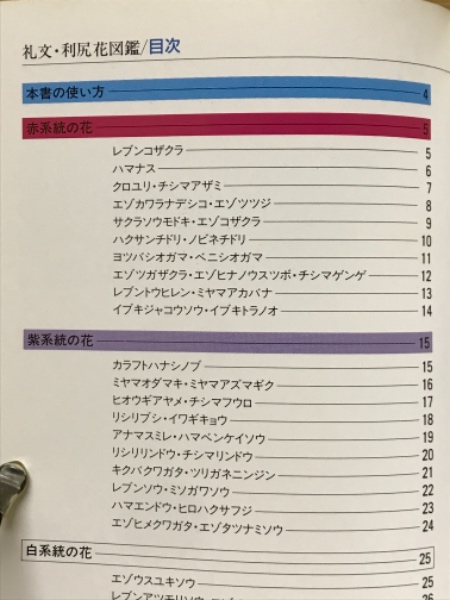 礼文・利尻花図鑑/目次
本書の使い方 4
赤系統の花 5
レブンコザクラ 5
ハマナス 6
クロユリ・チシマアザミ 7
エゾカワラナデシコ・エゾツツジ 8
サクラソウモドキ・エゾコザクラ 9
ハクサンチドリ・ノビネチドリ 10
ヨツバシオガマ・ベニシオガマ 11
エゾツガザクラ・エゾヒナノウスツボ・チシマゲンゲ 12
レブントウヒレン・ミヤマアカバナ 13
イブキジャコウソウ・イブキトラノオ 14
紫系統の花 15
カラフトハナシノブ 15
ミヤマオダマキ・ミヤマアズマギク 16
ヒオウギアヤメ・チシマフウロ 17
リシリブシ・イワギキョウ 18
アナマスミレ・ハマベンケイソウ 19
リシリリンドウ・チシマリンドウ 20
キクバクワガタ・ツリガネニンジン 21
レブンソウ・ミソガワソウ 22
ハマエンドウ・ヒロハクサフジ 23
エゾヒメクワガタ・エゾタツナミソウ 24
白系統の花 25
エゾウスユキソウ 25
レブンアツモリソウ 26